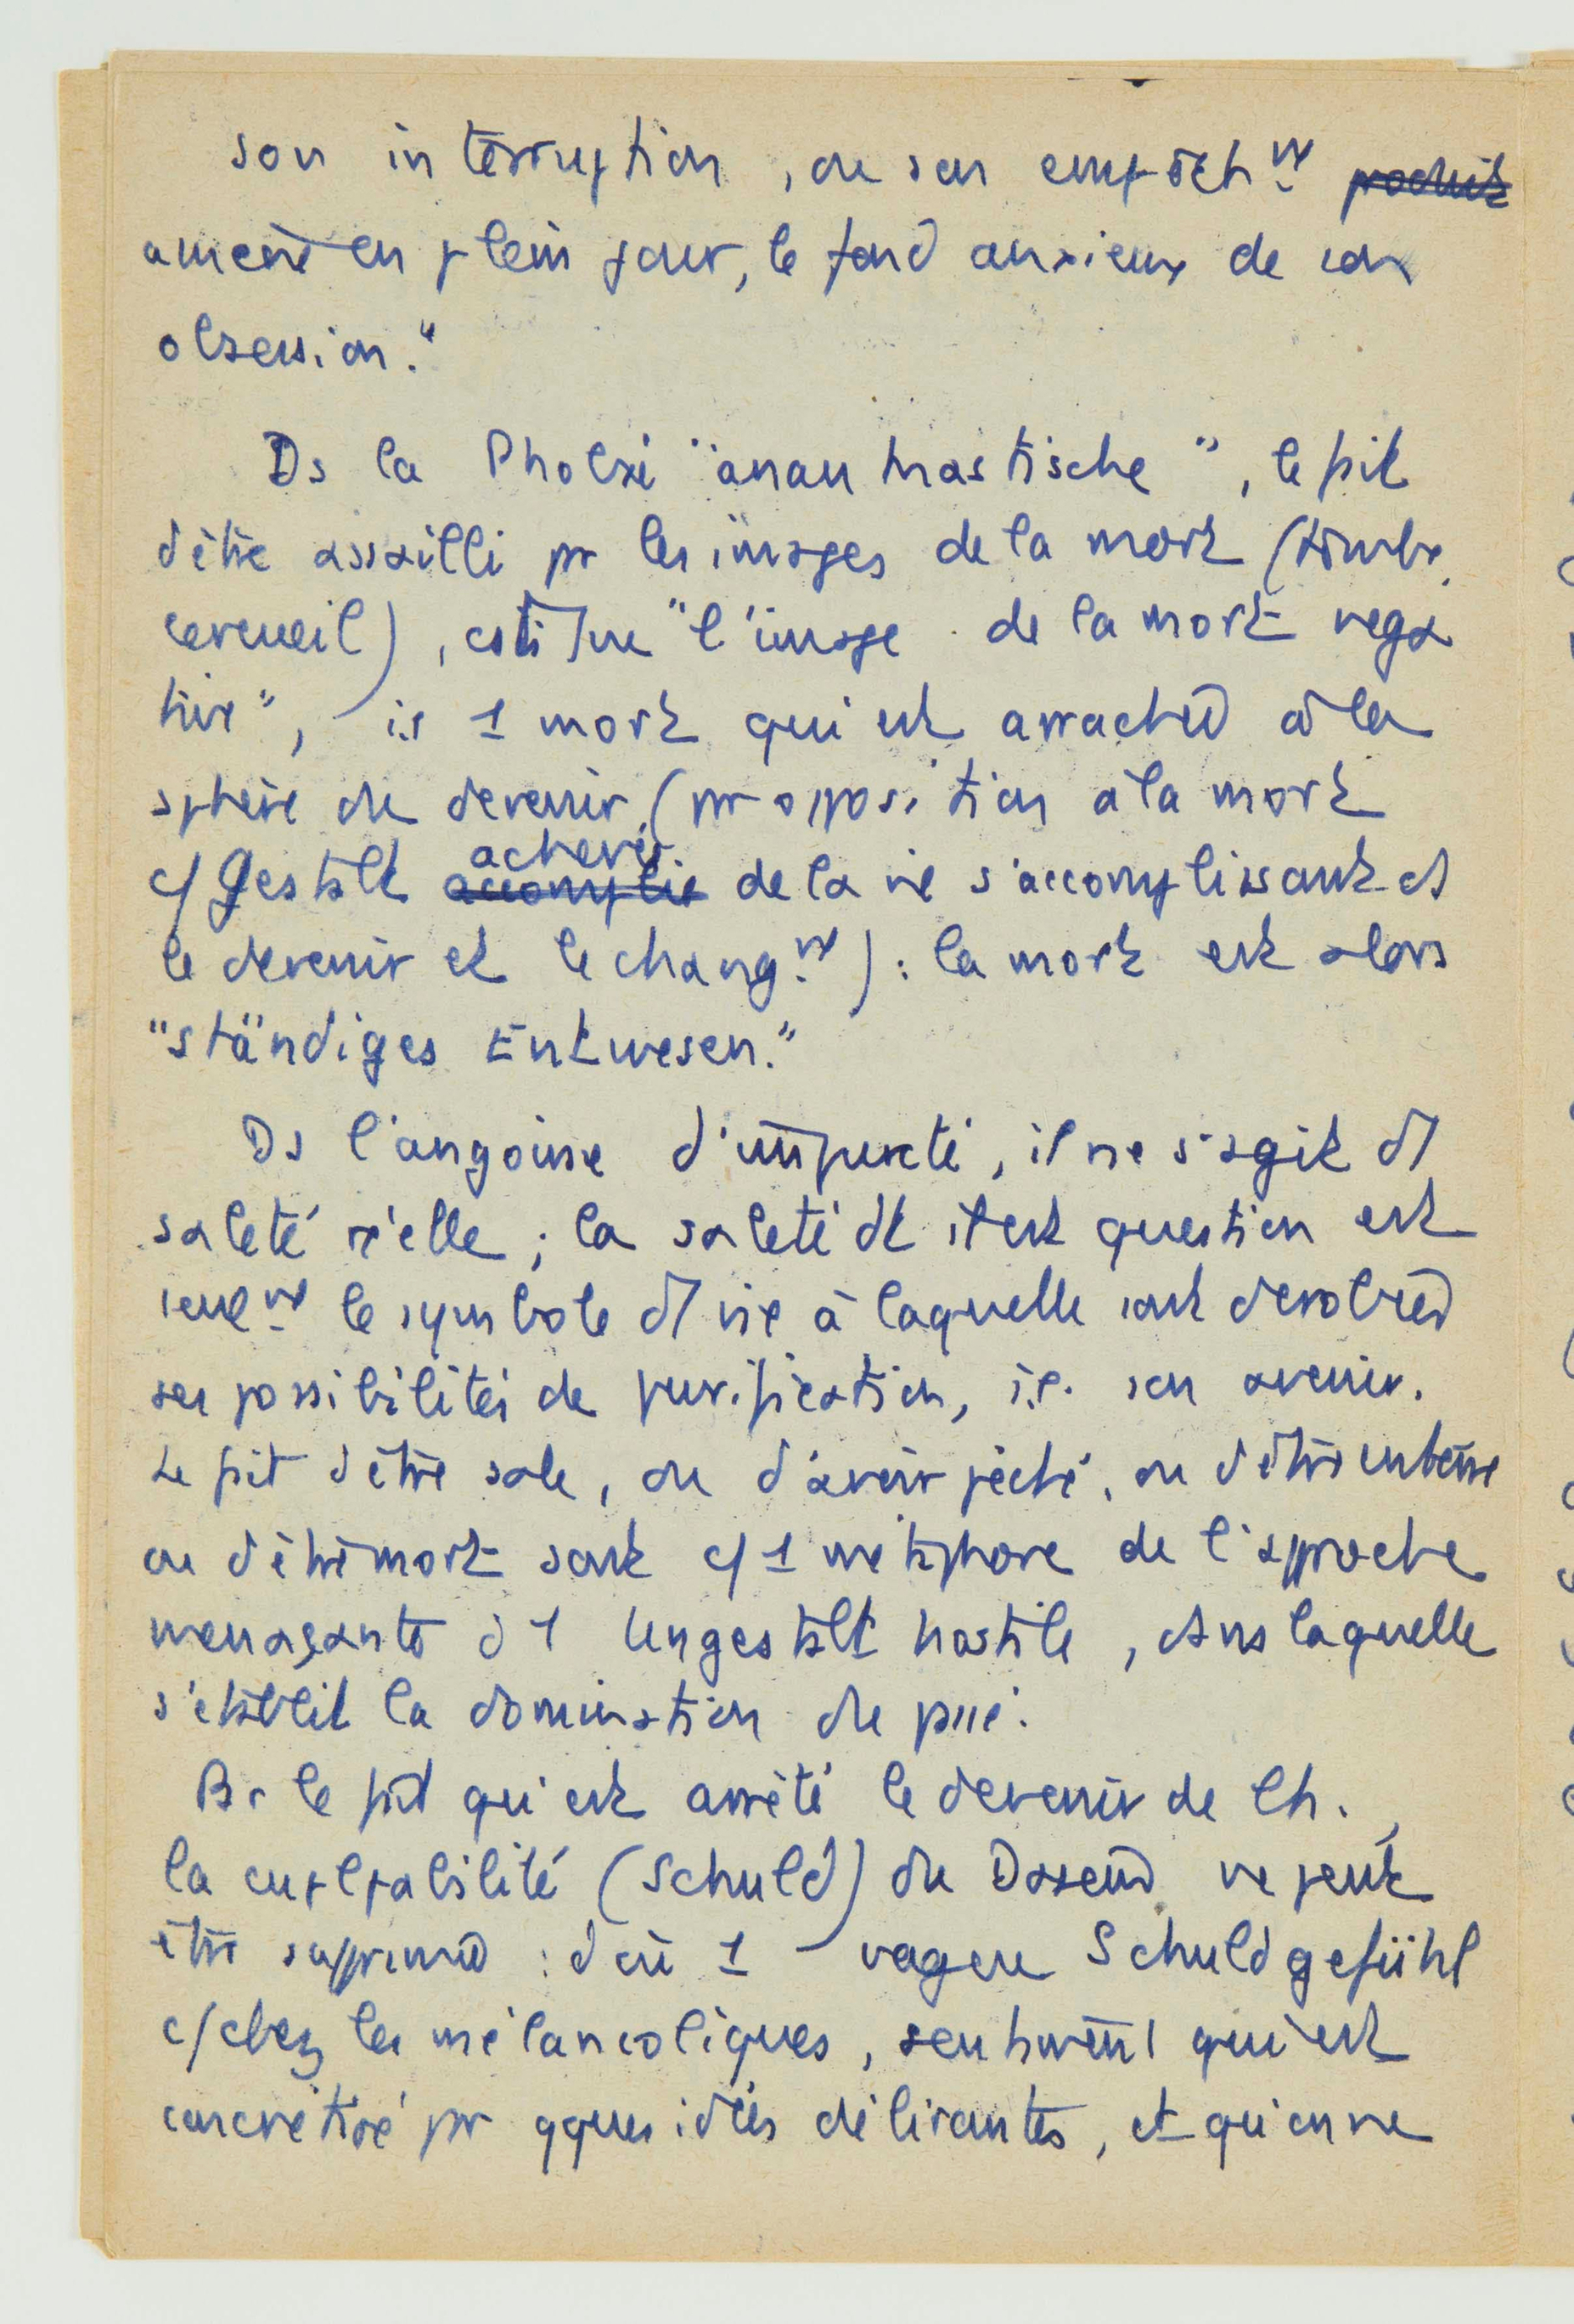 son interruption, ou son empêchnt produit
amène en plein jour, le fond anxieux de son
obsession."
Ds la Phobie "anankastische", le fait
d'être assailli pr les images de la mort (tombe,
cercueil), cstitue "l'image de la mort néga
tive", i.e 1 mort qui est arrachée à la
sphère du devenir (pr opposition à la mort
c/ Gestalt accomplie achevée de la vie s'accomplissant ds
le devenir et le changnt) : la mort est alors
"ständiges Entwesen."
Ds l'angoisse d'impureté, il ne s'agit d'1
saleté réelle ; la saleté dt il est question est
seulnt le symbole d'1 vie à laquelle sont dérobées
ses possibilités de purification, i.e. son avenir.
Le fait d'être sale, ou d'avoir péché, ou d'être enterré
ou d'être mort sont c/ 1 métaphore de l'approche
menaçante d'1 Ungestalt hostile, dans laquelle
s'établit la domination du passé.
Pr le fait qu'est arrêté le devenir de l'h.,
la culpabilité (Schuld) du Dasein ne peut
être supprimée : d'où 1 vague Schuldgefühl
c/ chez les mélancoliques, sentiment qui est
concrétisé pr qques idées délirantes, et qui en ne